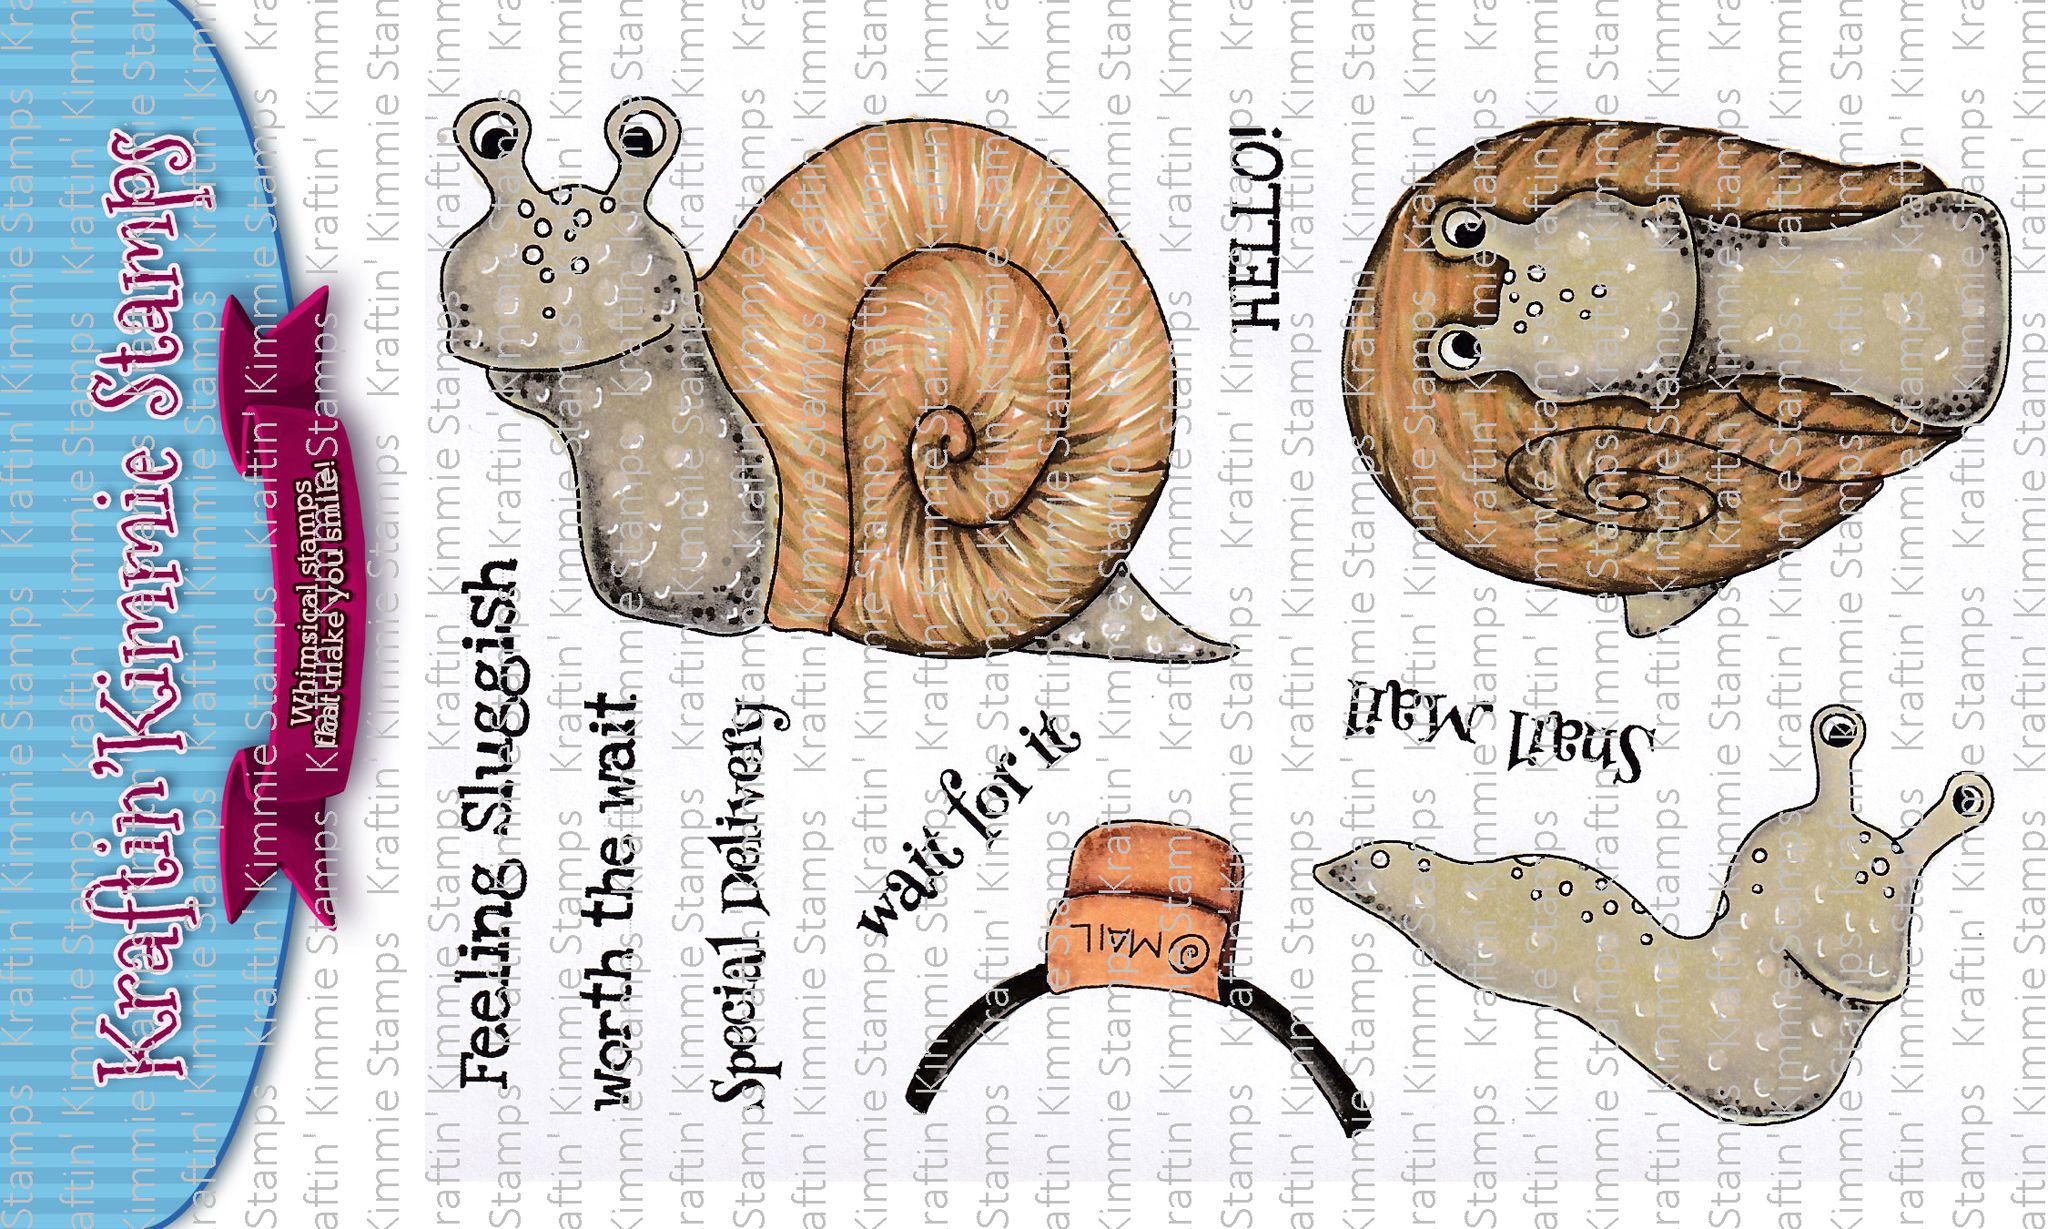 Kraftin' Kimmie Stamps
Whimsical stamps
that make you smile!
Feeling Sluggish
worth the wait
Special Delivery
wait for it
HELLO!
Snail Mail
MAIL
Kraftin' Kimmie Stamps